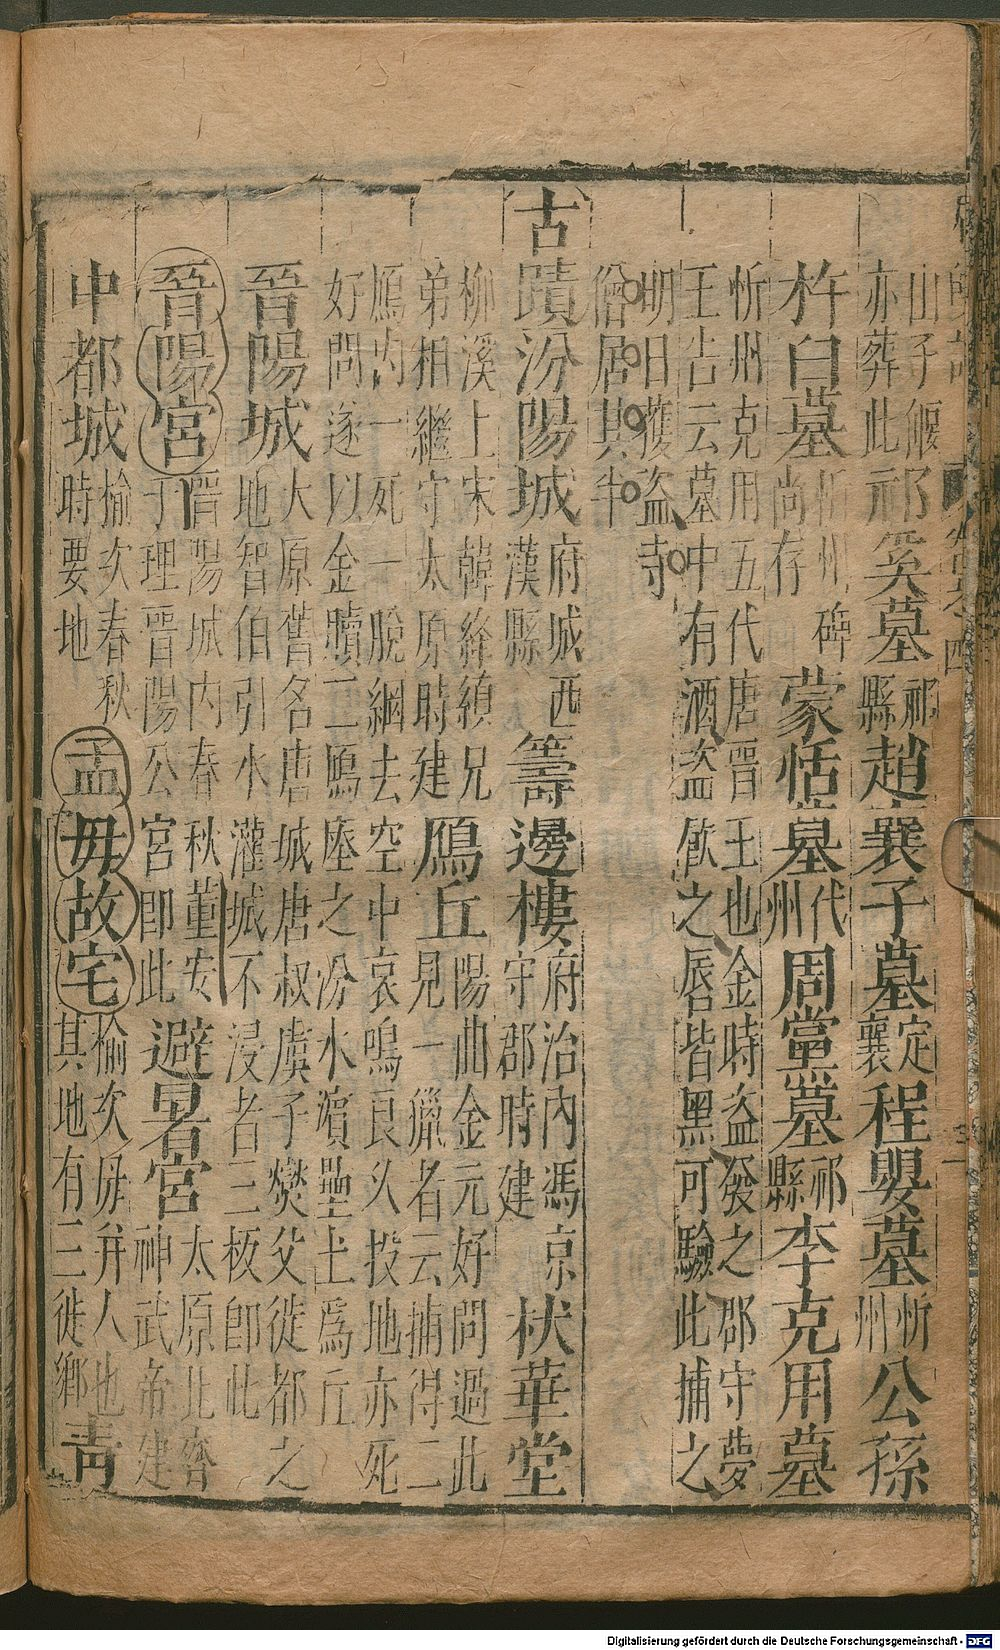 山子偃亦葬此祁奚墓祁縣趙襄子墓定襄程嬰墓忻州公孫
杵臼墓忻州碑尚存蒙恬墓代州周黨墓祁縣李克用墓
忻州克用五代唐晋王也金時盗發之郡守夢
王告云墓中有酒盗飲之唇皆黑可驗此捕之
明日獲盗寺
僧居其半
古蹟汾陽城府城西漢縣籌邊樓府治內馮京守郡時建栿華堂
柳溪上宋韓絳縝兄弟相繼守太原時建鴈丘陽曲金元好問過此見一獵者云捕得二
鴈內一死一脫網去空中哀鳴良久投地亦死
好問遂以金贖二鴈瘞之汾水濱壘土爲丘
晉陽城大原舊名唐城唐叔虞子燮父徙都之地智伯引水灌城不浸者三板卽此
晉陽宮晋陽城內春秋董安于理晋陽公宮卽此避暑宮太原北齊神武帝建
中都城榆次春秋時要地孟母故宅榆次母并人也其地有三徙鄉靑
Digitalisierung gefördert durch die Deutsche Forschungsgemeinschaft - DFG